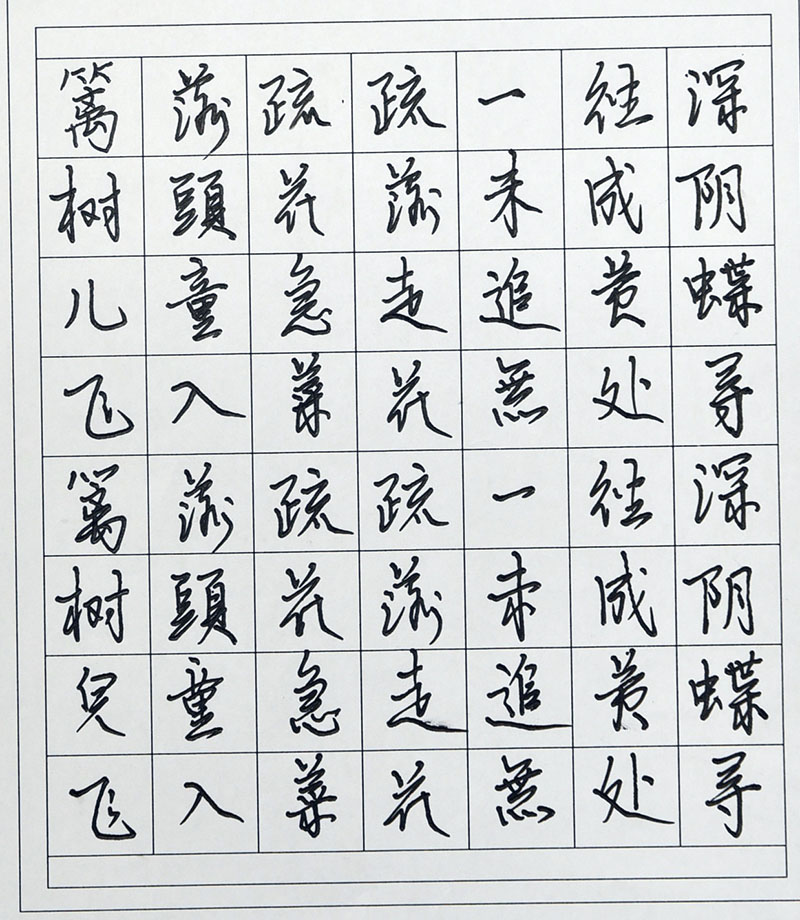 篱落疏疏一径深
树頭花落未成阴
儿童急走追黄蝶
飞入菜花無处寻
篱落疏疏一径深
树頭花落未成阴
兒童急走追黄蝶
飞入菜花無处寻